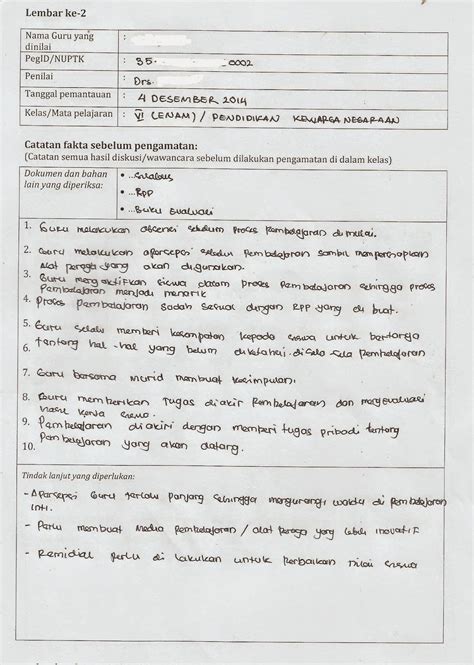 Lembar ke-2
Nama Guru yang dinilai :
PegID/NUPTK : 35. 0002
Penilai : Drs.
Tanggal pemantauan : 4 DESEMBER 2014
Kelas/Mata pelajaran : VI (ENAM) / PENDIDIKAN KEWARGANEGARAAN
Catatan fakta sebelum pengamatan:
(Catatan semua hasil diskusi/wawancara sebelum dilakukan pengamatan di dalam kelas)
Dokumen dan bahan lain yang diperiksa:
• ...Silabus
• ...RPP
• ...Buku Evaluasi
1. Guru melakukan absensi sebelum proses pembelajaran di mulai.
2. Guru melakukan apersepsi sebelum pembelajaran sambil mempersiapkan
alat peraga yang akan digunakan.
3. Guru mengaktifkan siswa dalam proses pembelajaran sehingga proses
pembelajaran menjadi menarik
4. Proses pembelajaran sudah sesuai dengan RPP yang di buat.
5. Guru selalu memberi kesempatan kepada siswa untuk bertanya
6. tentang hal-hal yang belum diketahui disela-sela pembelajaran
7. Guru bersama murid membuat kesimpulan.
8. Guru memberikan tugas diakir pembelajaran dan mengevaluasi
hasil kerja siswa.
9. Pembelajaran diakiri dengan memberi tugas pribadi tentang
10. pembelajaran yang akan datang.
Tindak lanjut yang diperlukan:
- Apersepsi Guru terlalu panjang sehingga mengurangi waktu di pembelajaran
inti.
- Perlu membuat Media pembelajaran / alat peraga yang lebih inovatif
- Remidial perlu di lakukan untuk perbaikan nilai siswa